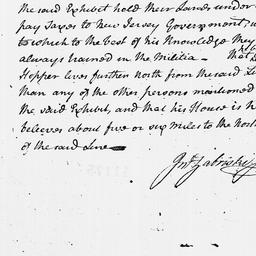 the said Exhibit hold their Lands under
pay Taxes to New Jersey Government,
to which to the best of his Knowledge they
always trained in the Militia — that
Hopper lives further north from the said
than any of the other persons mentioned
the said Exhibit, and that his House is
beleeves about five or six miles to the North
of the said Line
Jno. Zabriskie